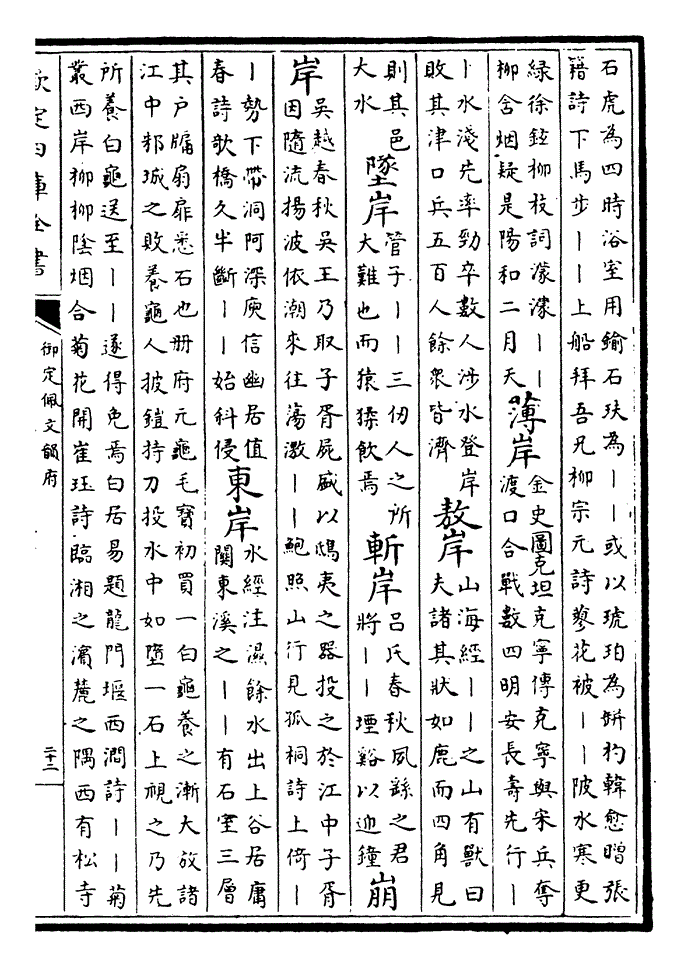 石虎為四時浴室用鍮石玞為丨丨或以琥珀為缾杓韓愈贈張
籍詩下馬步丨丨上船拜吾兄柳宗元詩蓼花被丨丨陂水寒更
緑徐鉉柳枝詞濛濛丨丨
柳含烟疑是陽和二月天
薄岸
金史圖克坦克寧傳克寧與宋兵奪
渡口合戰數四明安長壽先行丨
丨水淺先率勁卒數人涉水登岸
敗其津口兵五百人餘衆皆濟
敖岸
山海經丨丨之山有獸曰
夫諸其狀如鹿而四角見
則其邑
大水
墜岸
管子丨丨三仞人之所
大難也而猿猱飲焉
斬岸
呂氏春秋夙繇之君
將丨丨堙谿以迎鐘
崩
岸
吳越春秋吳王乃取子胥屍盛以鴟夷之器投之於江中子胥
因隨流揚波依潮來往蕩激丨丨鮑照山行見孤桐詩上倚丨
丨勢下帶洞阿深庾信幽居值
春詩歌橋久半斷丨丨始斜侵
東岸
水經注濕餘水出上谷居庸
關東溪之丨丨有石室三層
其户牖扇扉悉石也册府元龜毛寶初買一白龜養之漸大放諸
江中邾城之敗養龜人披鎧持刀投水中如墮一石上視之乃先
所養白龜送至丨丨遂得免焉白居易題龍門堰西澗詩丨丨菊
叢西岸柳柳陰烟合菊花開崔珏詩臨湘之濱麓之隅西有松寺
欽定四庫全書
御定佩文韻府
二十三